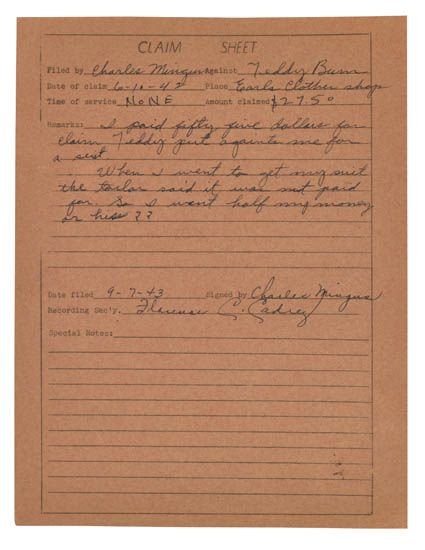 CLAIM SHEET
Filed by Charles Mingus Against Teddy Bunn
Date of claim 6-10-42 Place Earls Clother shop
Time of service NoNE Amount claimed $27.50
Remarks: I paid fifty five dollars for
claim Teddy put againts me for
a suit.
When I went to get my suit
the tailor said it was not paid
for. So I want half my money
or hiss ??
Date filed 9-7-43 Signed by Charles Mingus
Recording Sec'y. Florence C. Cadrez
Special Notes: